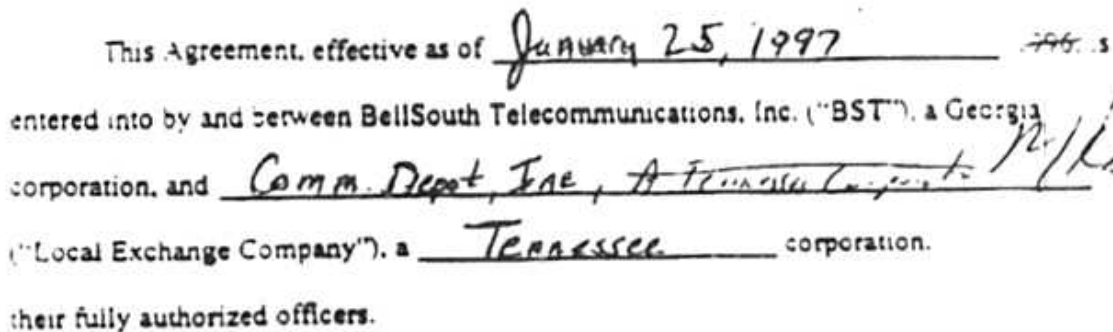 This Agreement, effective as of January 25, 1997 s
entered into by and between BellSouth Telecommunications, Inc. ("BST"), a Georgia
corporation, and Comm. Depot, Inc, A Tennessee
("Local Exchange Company"), a Tennessee corporation.
their fully authorized officers.